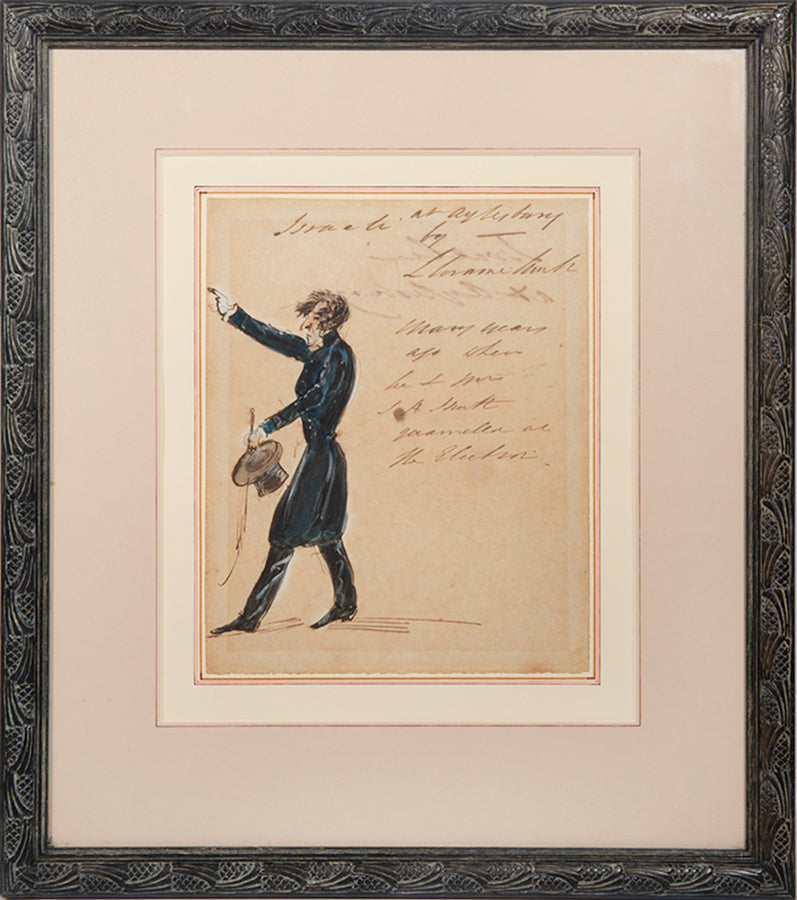 Israeli. at Aylesbury
by —
Many years
ago when
he & Mrs
S A Smith
quarrelled at
the Election.